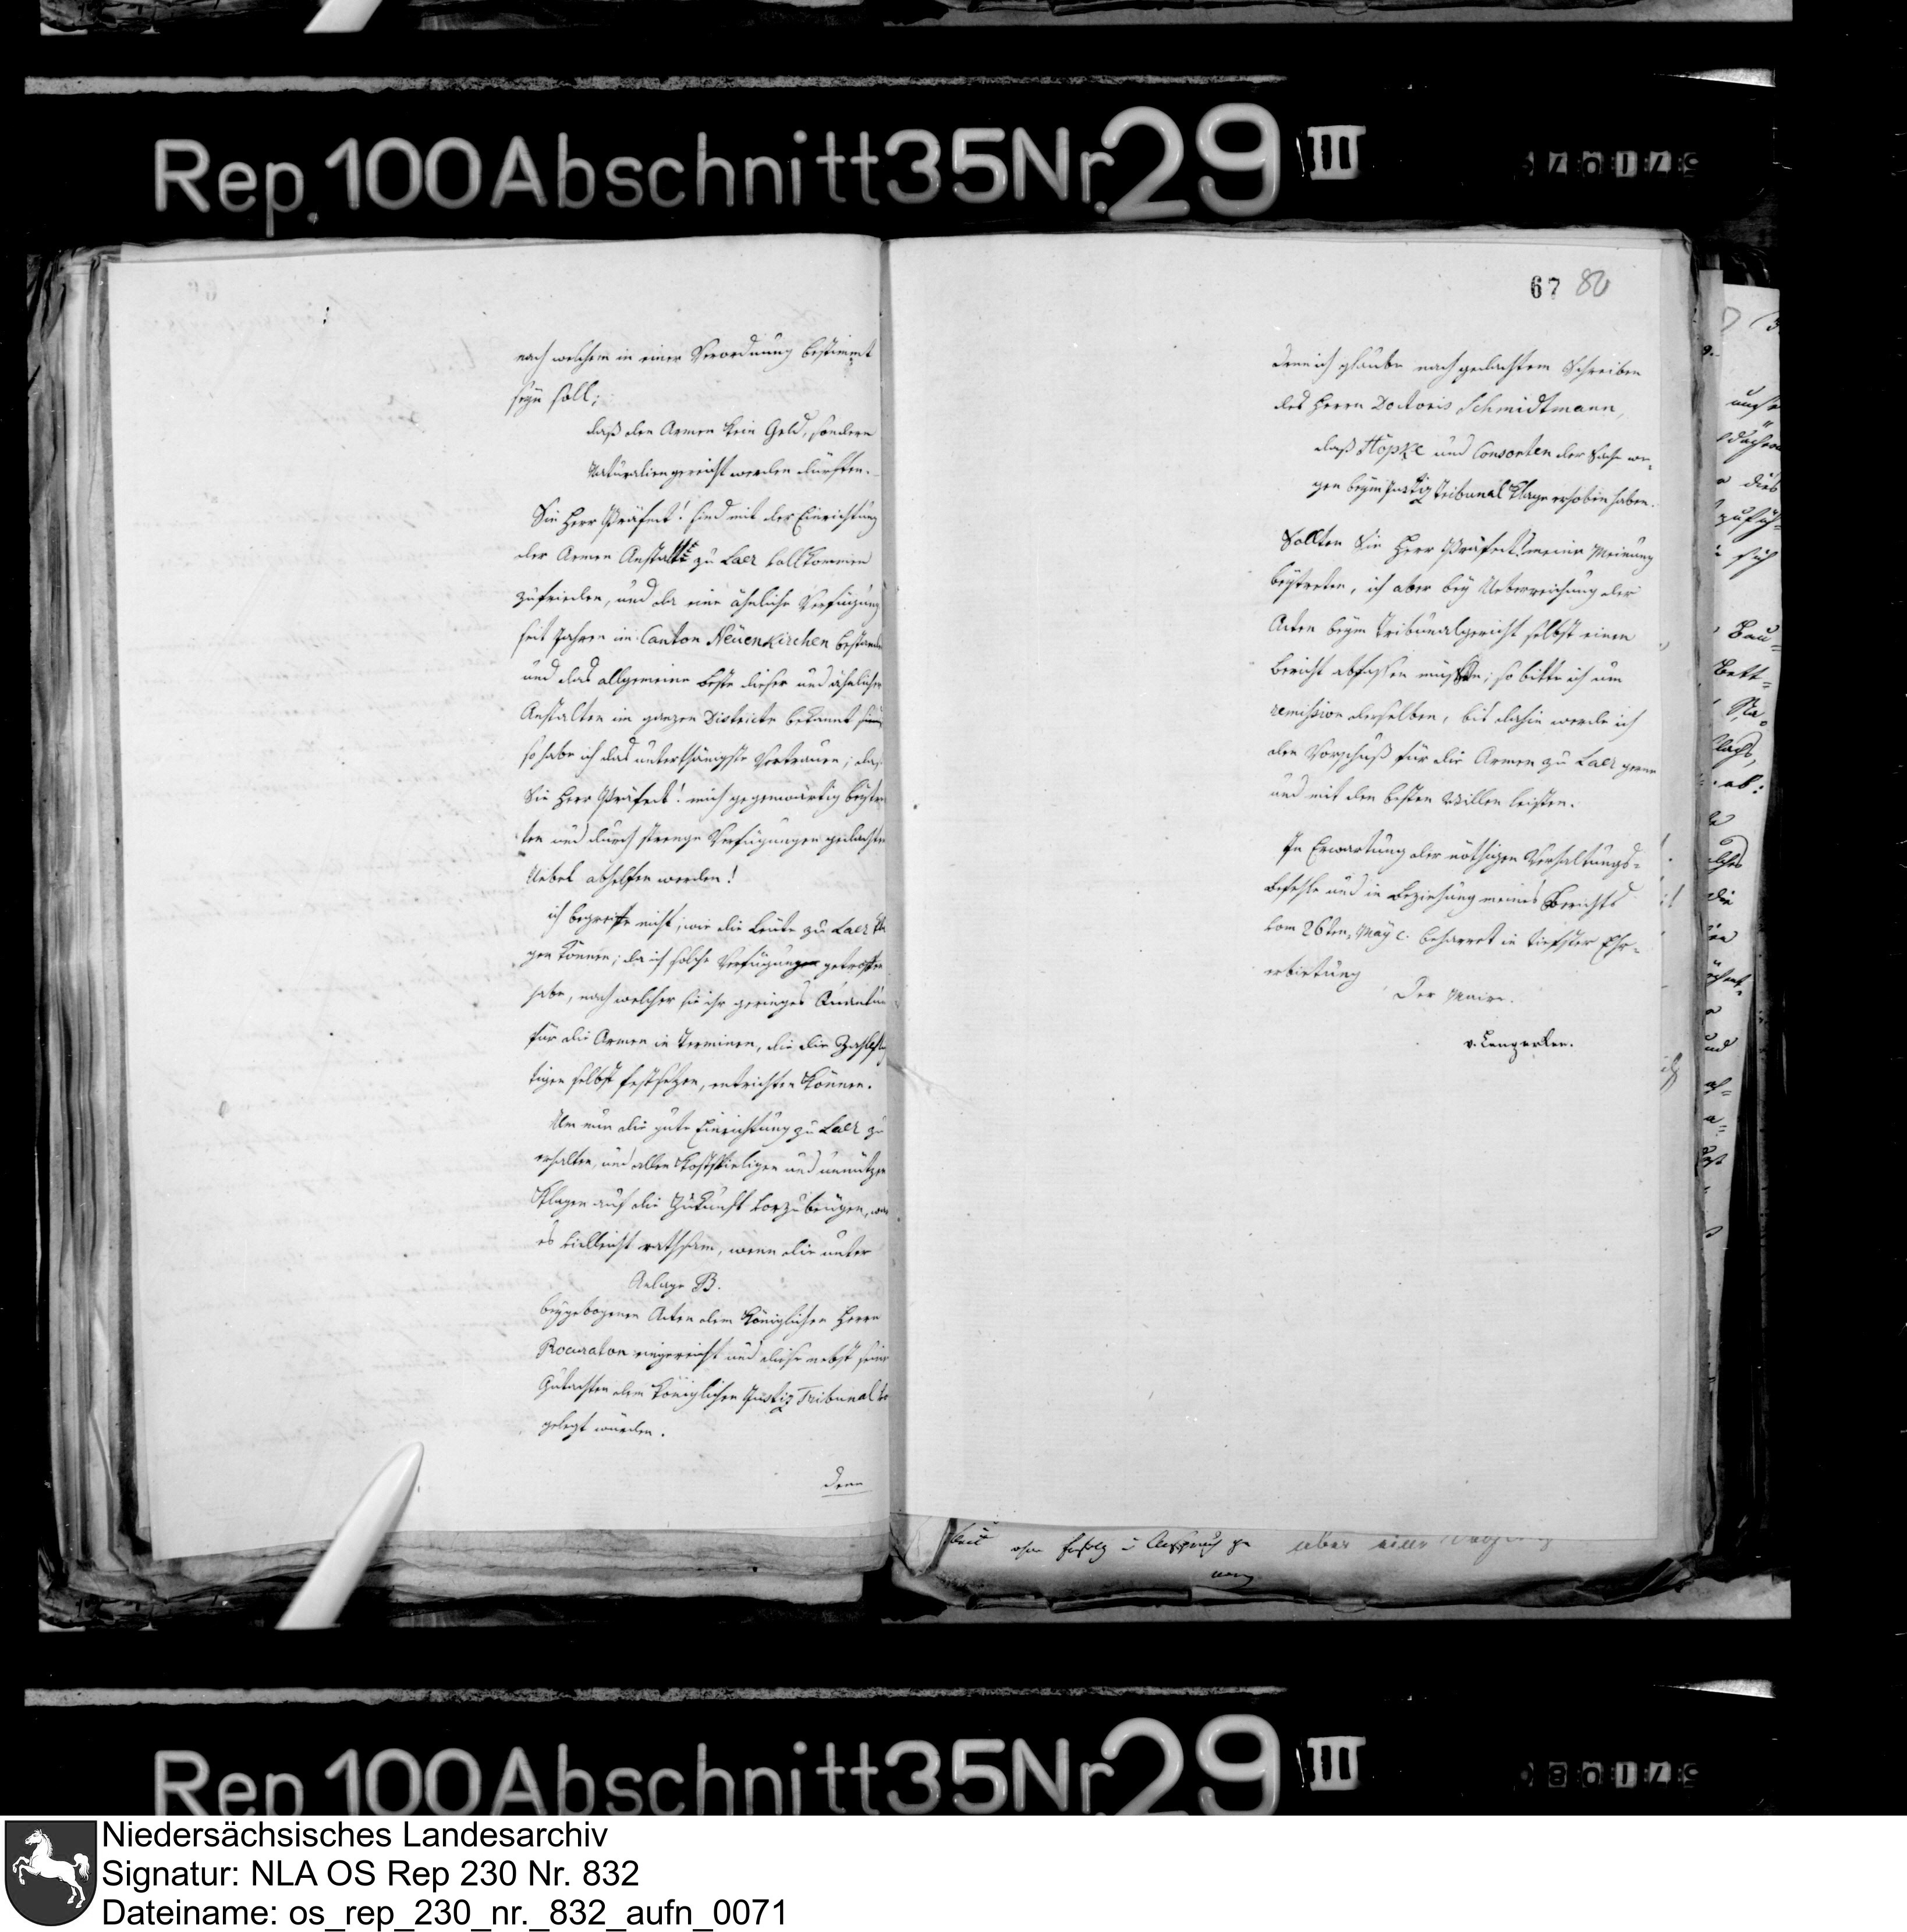 Rep. 100 Abschnitt 35 Nr. 29 III
nach welchem in einer Verordnung bestimmt
seyn soll;
daß den Armen kein Geld, sondern
Naturalien gereicht werden dürften.
Sie Herr Präfect! sind mit der Einrichtung
der Armen Anstalt zu Laer vollkommen
zufrieden, und da eine ähnliche Verfügung
seit Jahren im Canton Neüenkirchen
und das allgemeine Beste dieser und ähnlicher
Anstalten im ganzen Districte bekannt sind,
so habe ich das unterthänigste Vertrauen; daß
Sie Herr Präfect! mich gegenwärtig
ten und durch strenge Verfügungen gedachten
Uebel abhelfen werden!
ich begreiffe nicht, wie die Leüte zu Laer kla
gen können; da ich solche Verfügungen getroffen
habe, nach welcher sie ihr geringes Quantum
für die Armen in Terminen, die die
tigen selbst festsetzen, entrichten können.
Um nun die gute Einrichtung zu Laer zu
erhalten, und allen kostspieligen und unnützen
Klagen auf die Zukunft vorzubeugen, wär
es vielleicht rathsam, wenn die unter
Anlage B.
beygebogenen Acten dem Königlichen Herrn
Procurator eingereicht und diese nebst seinem
Gutachten dem Königlichen Justiz Tribunal
gelegt würden.
Denn
67 80
Denn ich glaube nach gedachtem Schreiben
des Herrn Doctoris Schmidtmann,
daß Höpke und Consorten der Sache we-
gen beym Justiz Tribunal Klage erhoben haben.
Sollten Sie Herr Präfect! meine Meinung
beytreten, ich aber bey Ueberreichung der
Acten beym Tribunalgericht selbst einen
Bericht abfassen müssen; so bitte ich um
remission derselben, bis dahin werde ich
den Vorschuß für die Armen zu Laer gerne
und mit den besten Willen leisten.
In Erwartung der nöthigen Verhaltungs-
befehle und in Beziehung meines Berichts
vom 26ten May c. beharret in tiefster Ehr-
erbietung
Der Maire.
v. Lengerken.
Rep 100 Abschnitt 35 Nr 29 III
Niedersächsisches Landesarchiv
Signatur: NLA OS Rep 230 Nr. 832
Dateiname: os_rep_230_nr._832_aufn_0071